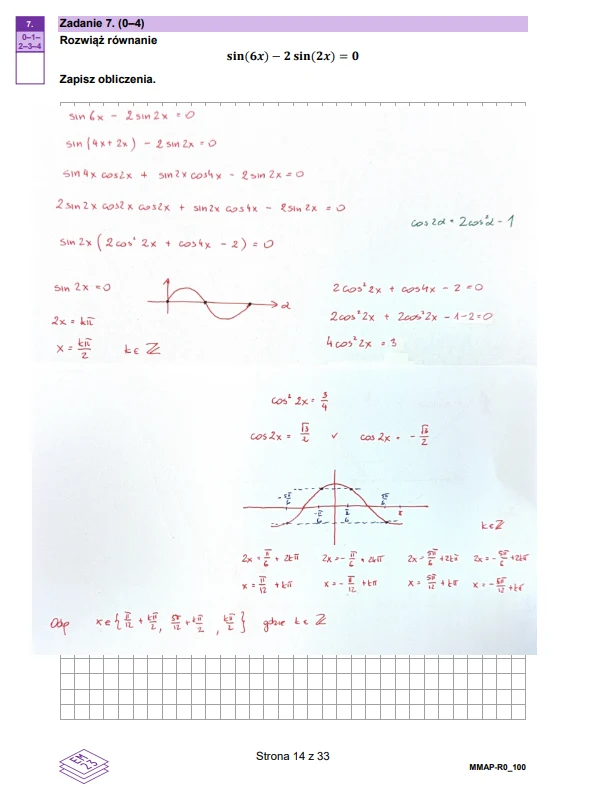 7.
0–1–
2–3–4
Zadanie 7. (0–4)
Rozwiąż równanie
sin(6x) − 2 sin(2x) = 0
Zapisz obliczenia.
sin 6x - 2 sin 2x = 0
sin (4x + 2x) - 2 sin 2x = 0
sin 4x cos2x + sin 2x cos4x - 2 sin 2x = 0
2 sin 2x cos2x cos2x + sin2x cos4x - 2sin 2x = 0
cos2α = 2cos²α - 1
sin 2x (2 cos² 2x + cos4x - 2) = 0
sin 2x = 0
2x = kπ
x = kπ/2 k ∈ ℤ
α
2cos² 2x + cos4x - 2 = 0
2cos² 2x + 2cos² 2x - 1 - 2 = 0
4cos² 2x = 3
cos² 2x = 3/4
cos2x = √3/2 ∨ cos 2x = - √3/2
-5π/6 -π/6 π/6 5π/6 π
k∈ℤ
2x = π/6 + 2kπ 2x = -π/6 + 2kπ 2x = 5π/6 + 2kπ 2x = -5π/6 + 2kπ
x = π/12 + kπ x = -π/12 + kπ x = 5π/12 + kπ x = -5π/12 + kπ
Odp x ∈ {π/12 + kπ/2, 5π/12 + kπ/2, kπ/2} gdzie k ∈ ℤ
EM
23
Strona 14 z 33
MMAP-R0_100